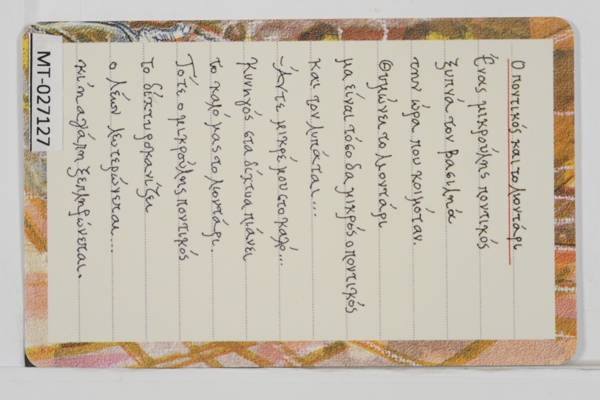 Ο ποντικός και το λιοντάρι
Ένας μικρούλης ποντικός
ξυπνά τον βασιλιά
την ώρα που κοιμόταν.
Θυμώνει το λιοντάρι
μα είναι τόσο δα μικρός ο ποντικός
και τον λυπάται...
-Άντε μικρέ μου στο καλό...
Κυνηγός στα δίχτυα πιάνει
το καλό μας το λιοντάρι.
Τότε ο μικρούλης ποντικός
το δίχτυ ροκανίζει
ο λέων λευτερώνεται...
κι η αγάπη ξεπληρώνεται.
MT-027127